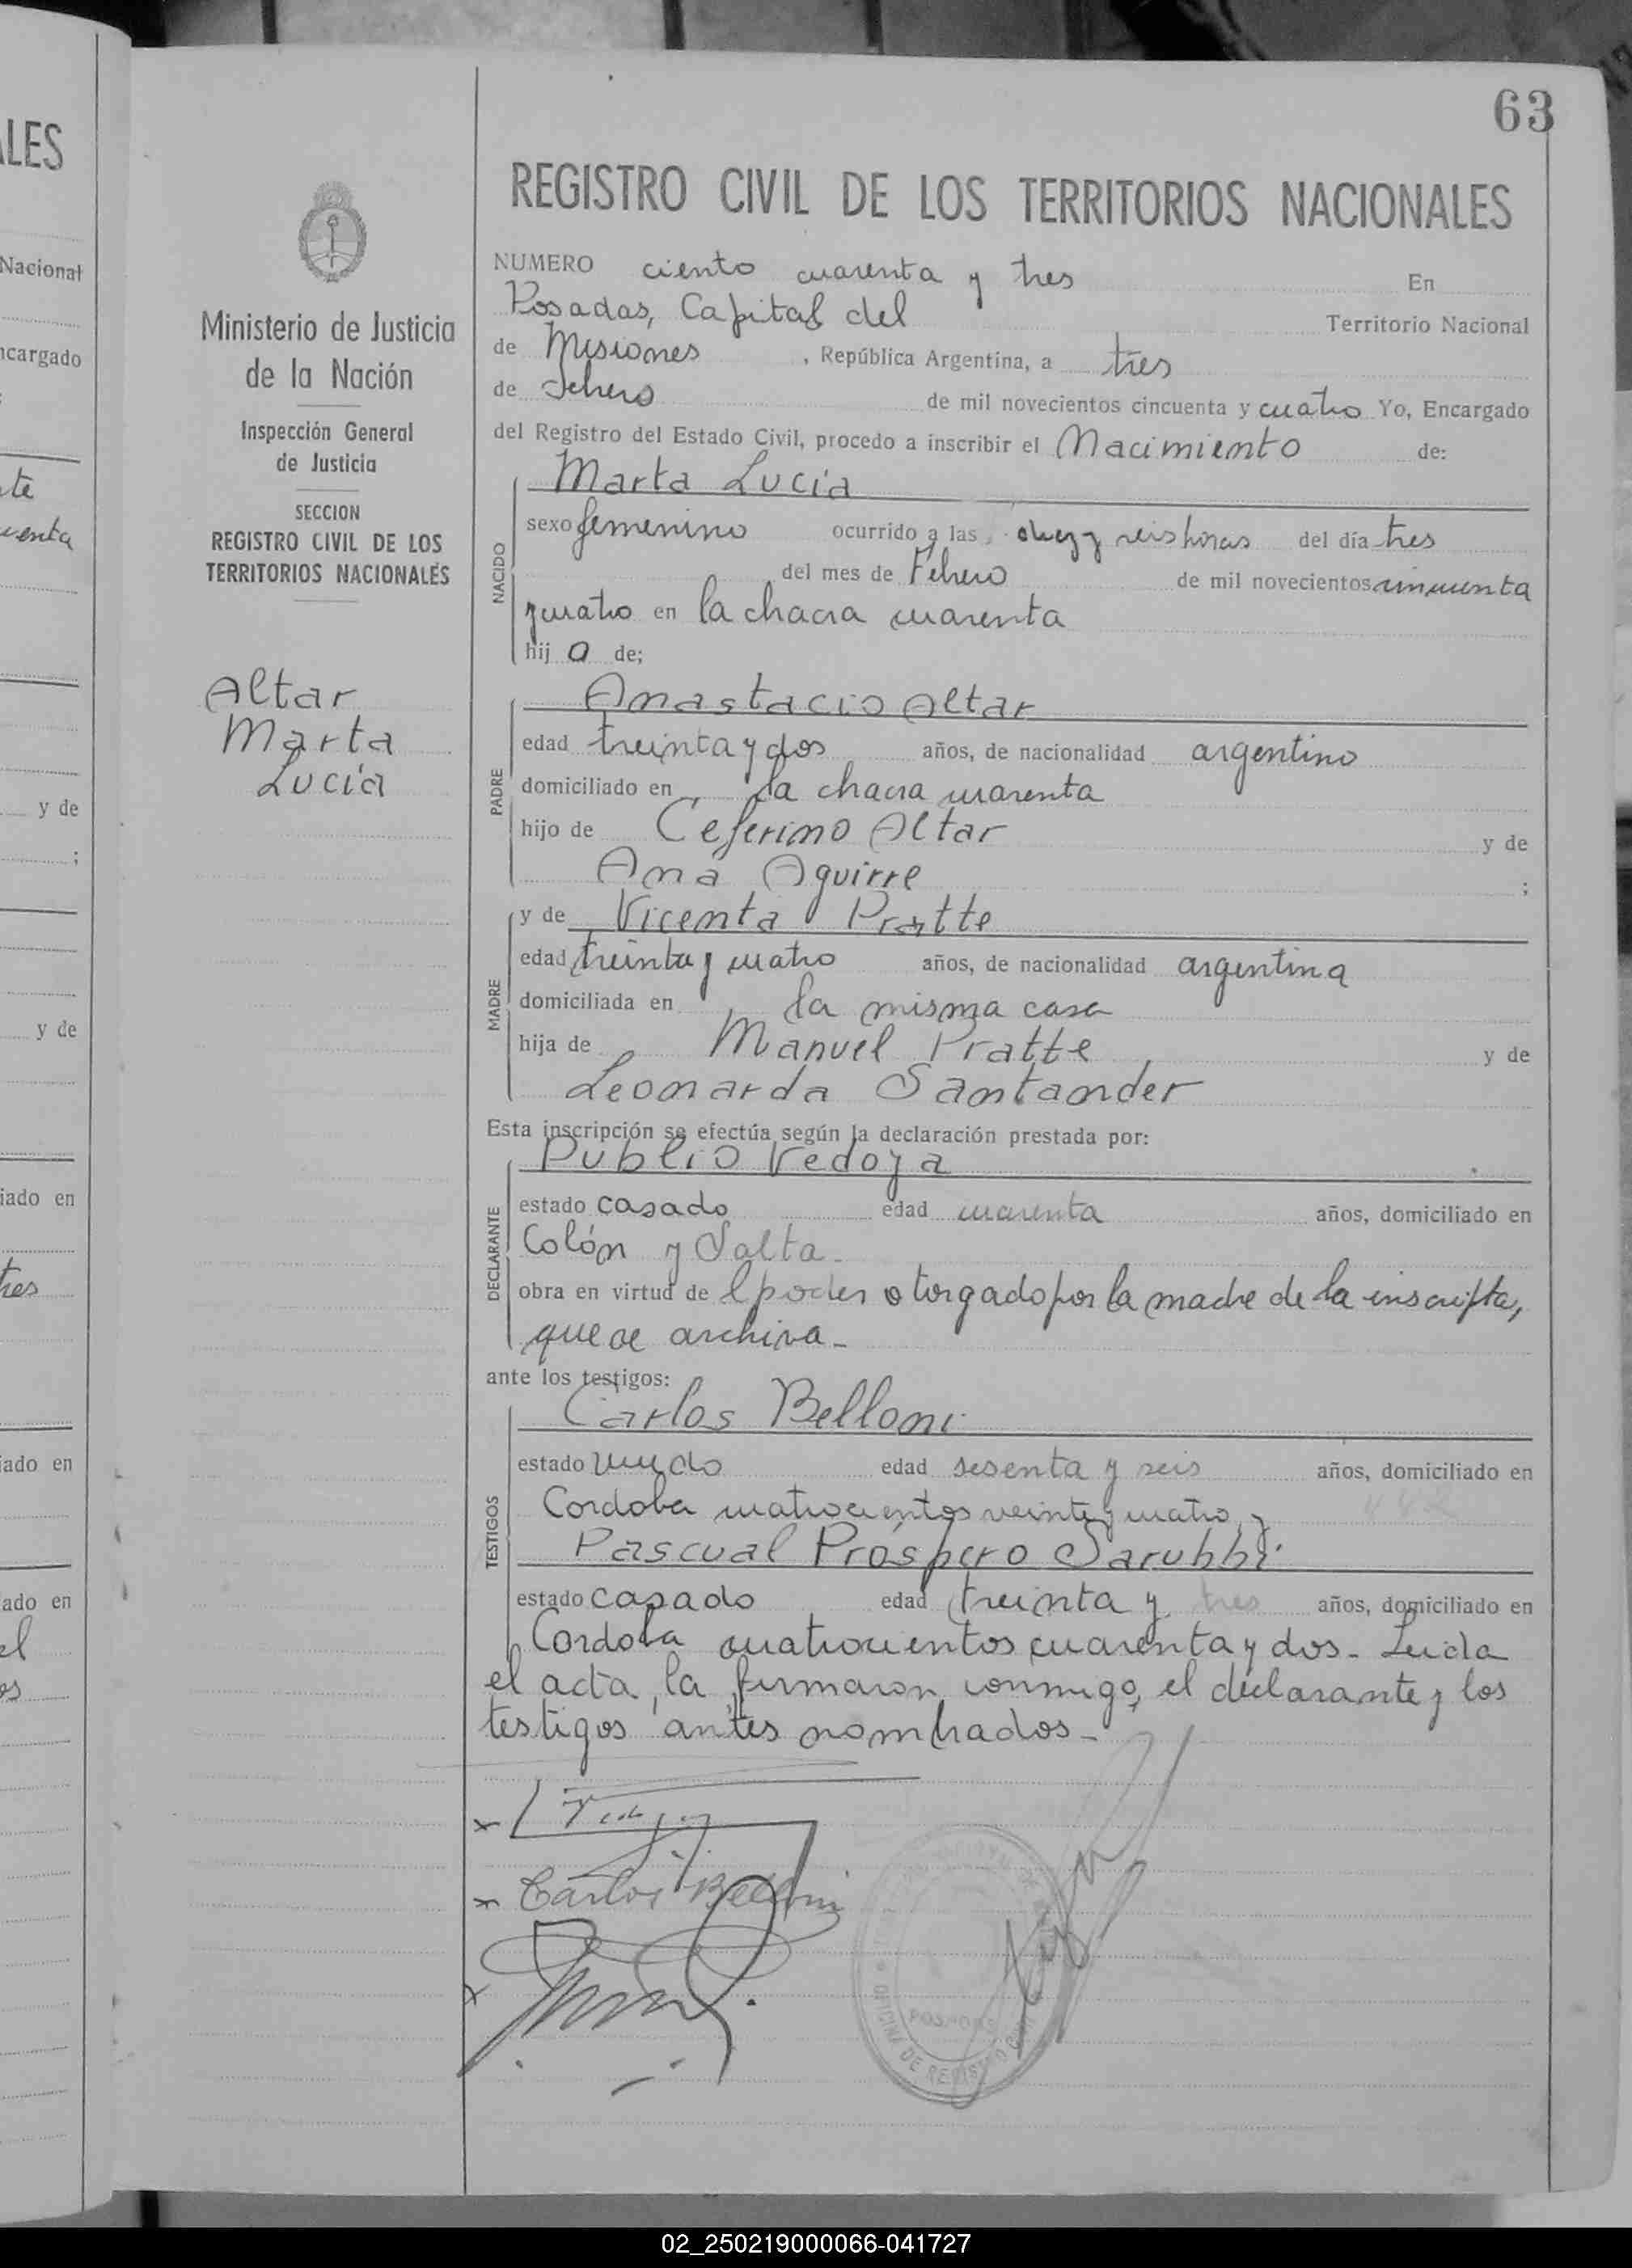 63
REGISTRO CIVIL DE LOS TERRITORIOS NACIONALES
Ministerio de Justicia
de la Nación
Inspección General
de Justicia
SECCION
REGISTRO CIVIL DE LOS
TERRITORIOS NACIONALES
Altar
Marta
Lucía
NUMERO ciento cuarenta y tres En
Posadas, Capital del Territorio Nacional
de Misiones, República Argentina, a tres
de Febrero de mil novecientos cincuenta y cuatro Yo, Encargado
del Registro del Estado Civil, procedo a inscribir el Nacimiento de:
NACIDO
Marta Lucía
sexo femenino ocurrido a las diez y seis horas del día tres
del mes de Febrero de mil novecientos cincuenta
y cuatro en la chacra cuarenta
hij a de;
PADRE
Anastacio Altar
edad treinta y dos años, de nacionalidad argentino
domiciliado en la chacra cuarenta
hijo de Ceferino Altar y de
Ana Aguirre ;
MADRE
y de Vicenta Pratte
edad treinta y cuatro años, de nacionalidad argentina
domiciliada en la misma casa
hija de Manuel Pratte y de
Leonarda Santander
Esta inscripción se efectúa según la declaración prestada por:
DECLARANTE
Publio Vedoya
estado casado edad cuarenta años, domiciliado en
Colón y Salta.
obra en virtud de l poder otorgado por la madre de la inscripta,
que se archiva-
ante los testigos:
TESTIGOS
Carlos Belloni
estado viudo edad sesenta y seis años, domiciliado en
Cordoba cuatrocientos veinte y cuatro y
Pascual Próspero Sarubbi
estado casado edad treinta y tres años, domiciliado en
Cordoba cuatrocientos cuarenta y dos- Leida
el acta, la firmaron conmigo, el declarante y los
testigos antes nombrados-
Carlos Belloni
POSADAS
OFICINA DE REGISTRO CIVIL
LES
Nacional
ncargado
y de
;
y de
iado en
tres
iado en
ado en
02_250219000066-041727